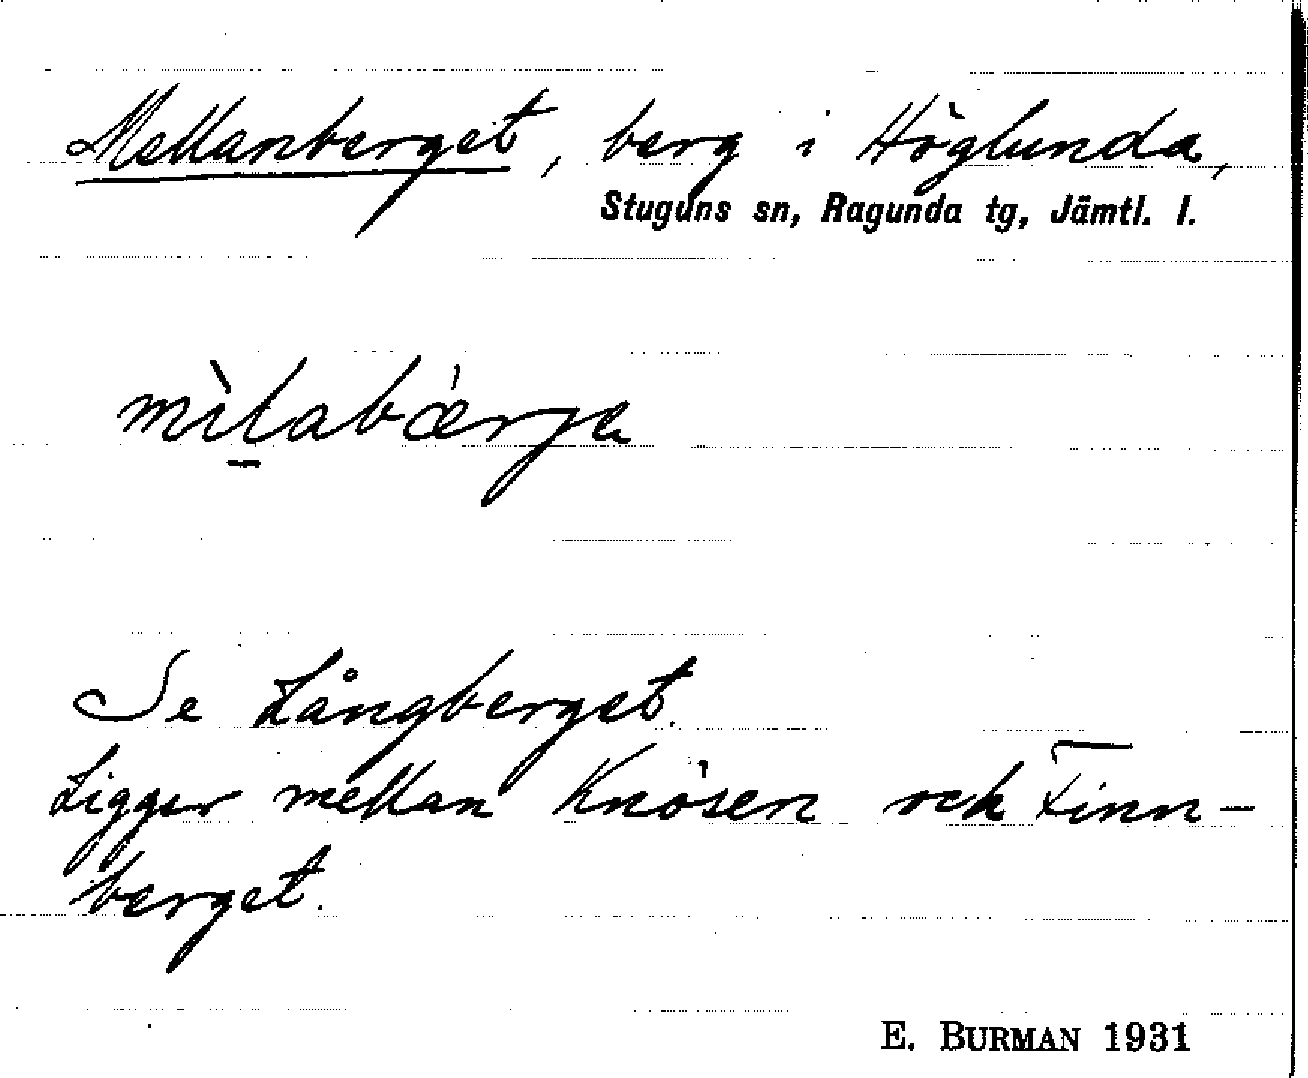 Mellanberget, berg i Höglunda,
Stuguns sn, Ragunda tg, Jämtl. l.
mìḻabǽrja
Se Långberget.
Ligger mellan Knösen och Finn-
berget.
E. BURMAN 1931